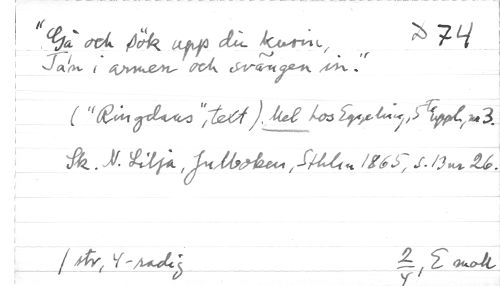 "Gå och sök upp din kusin, D 74
Ta'n i armen och svängen in."
("Ringdans", text). Mel hos Eggeling, 5te uppl, nr 3.
Sk. N. Lilja, Julboken, Sthlm 1865, s. 13 nr 26.
1 str, 4-radig 2/4, E moll